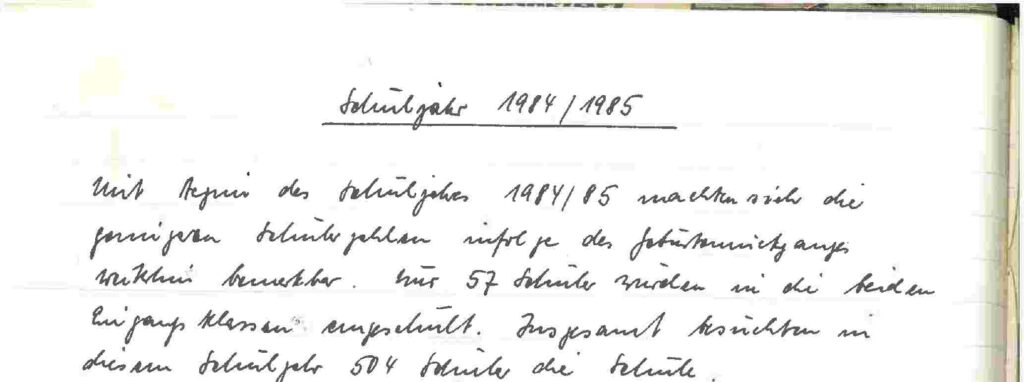 Schuljahr 1984/1985
Mit Beginn des Schuljahres 1984/85 machten sich die
geringeren Schülerzahlen infolge des Geburtenrückganges
weiterhin bemerkbar. Nur 57 Schüler wurden in die beiden
Eingangsklassen eingeschult. Insgesamt besuchten in
diesem Schuljahr 504 Schüler die Schule.